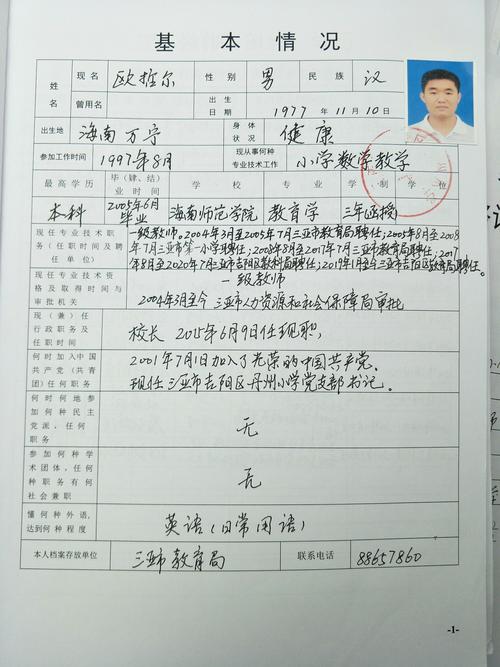 基 本 情 况
姓名 现名 欧拉尔 性别 男 民族 汉
曾用名 出生日期 1977 年 11 月 10 日
出生地 海南万宁 身体状况 健康
参加工作时间 1997年8月 现从事何种专业技术工作 小学数学教学
最高学历 毕(肄、结)业时间 学校 专业 学制 学位
本科 2005年6月毕业 海南师范学院 教育学 三年函授
现任专业技术职务(任职时间及聘任单位)
一级教师。2004年3月至2005年7月三亚市教育局聘任;2005年8月至2008
年7月三亚市第一小学聘任;2008年8月至2017年7月三亚市教育局聘任;2017
年8月至2020年7月三亚市吉阳区教科局聘任;2019年1月至今三亚市吉阳区教育局聘任。
现任专业技术资格及取得时间与审批机关
一级教师
2004年3月至今 三亚市人力资源和社会保障局审批
现(兼)任行政职务及任职时间
校长 2015年6月9日任现职,
何时加入中国共产党(共青团)任何职务
2001年7月1日加入了光荣的中国共产党。
现任三亚市吉阳区丹州小学党支部书记。
何时何地参加何种民主党派,任何职务 无
参加何种学术团体,任何种职务有何社会兼职 无
懂何种外语,达到何种程度 英语(日常用语)
本人档案存放单位 三亚市教育局 联系电话 88657860
-1-